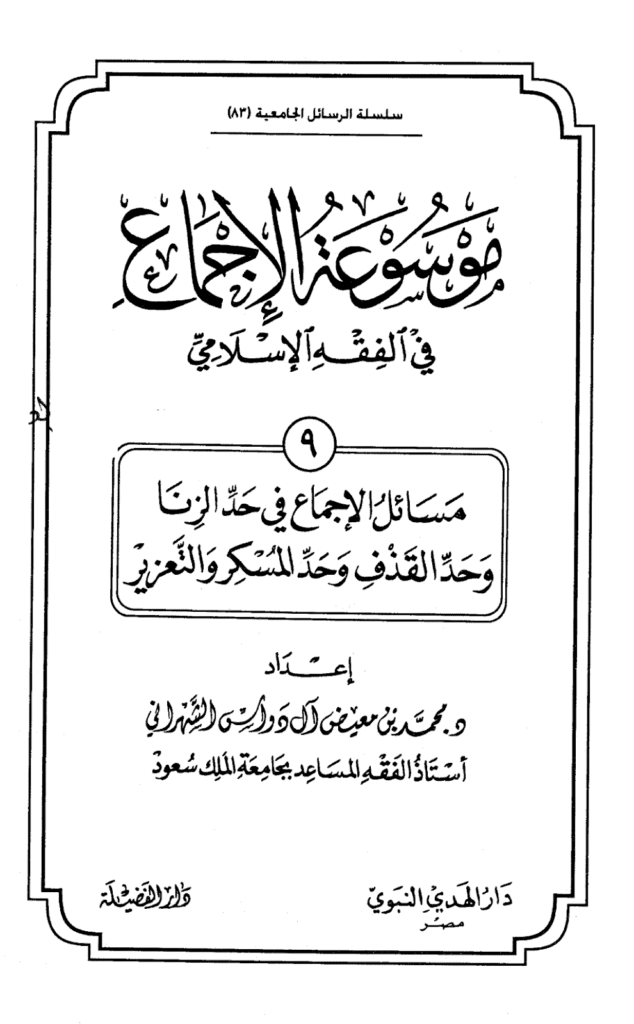 سلسلة الرسائل الجامعية (٨٣)
مَوْسُوْعَةُ الإِجْمَاعِ
فِيْ الفِقْهِ الإِسْلَامِيِّ
٩
مَسَائِلُ الإِجمَاع فِي حَدِّ الزِنَا
وَحَدِّ القَذْفِ وَحَدِّ المُسْكِر وَالتَّعزِيرْ
إعْدَاد
د. محمَّد بن معيض آل دوَاس الشَّهراني
أسْتَاذُ الفَقْهِ المسَاعِد بجَامعَةِ المَلِك سُعود
دَارُ الهَدي النبَويّ
مصر
دَارُ الفَضيْلَة